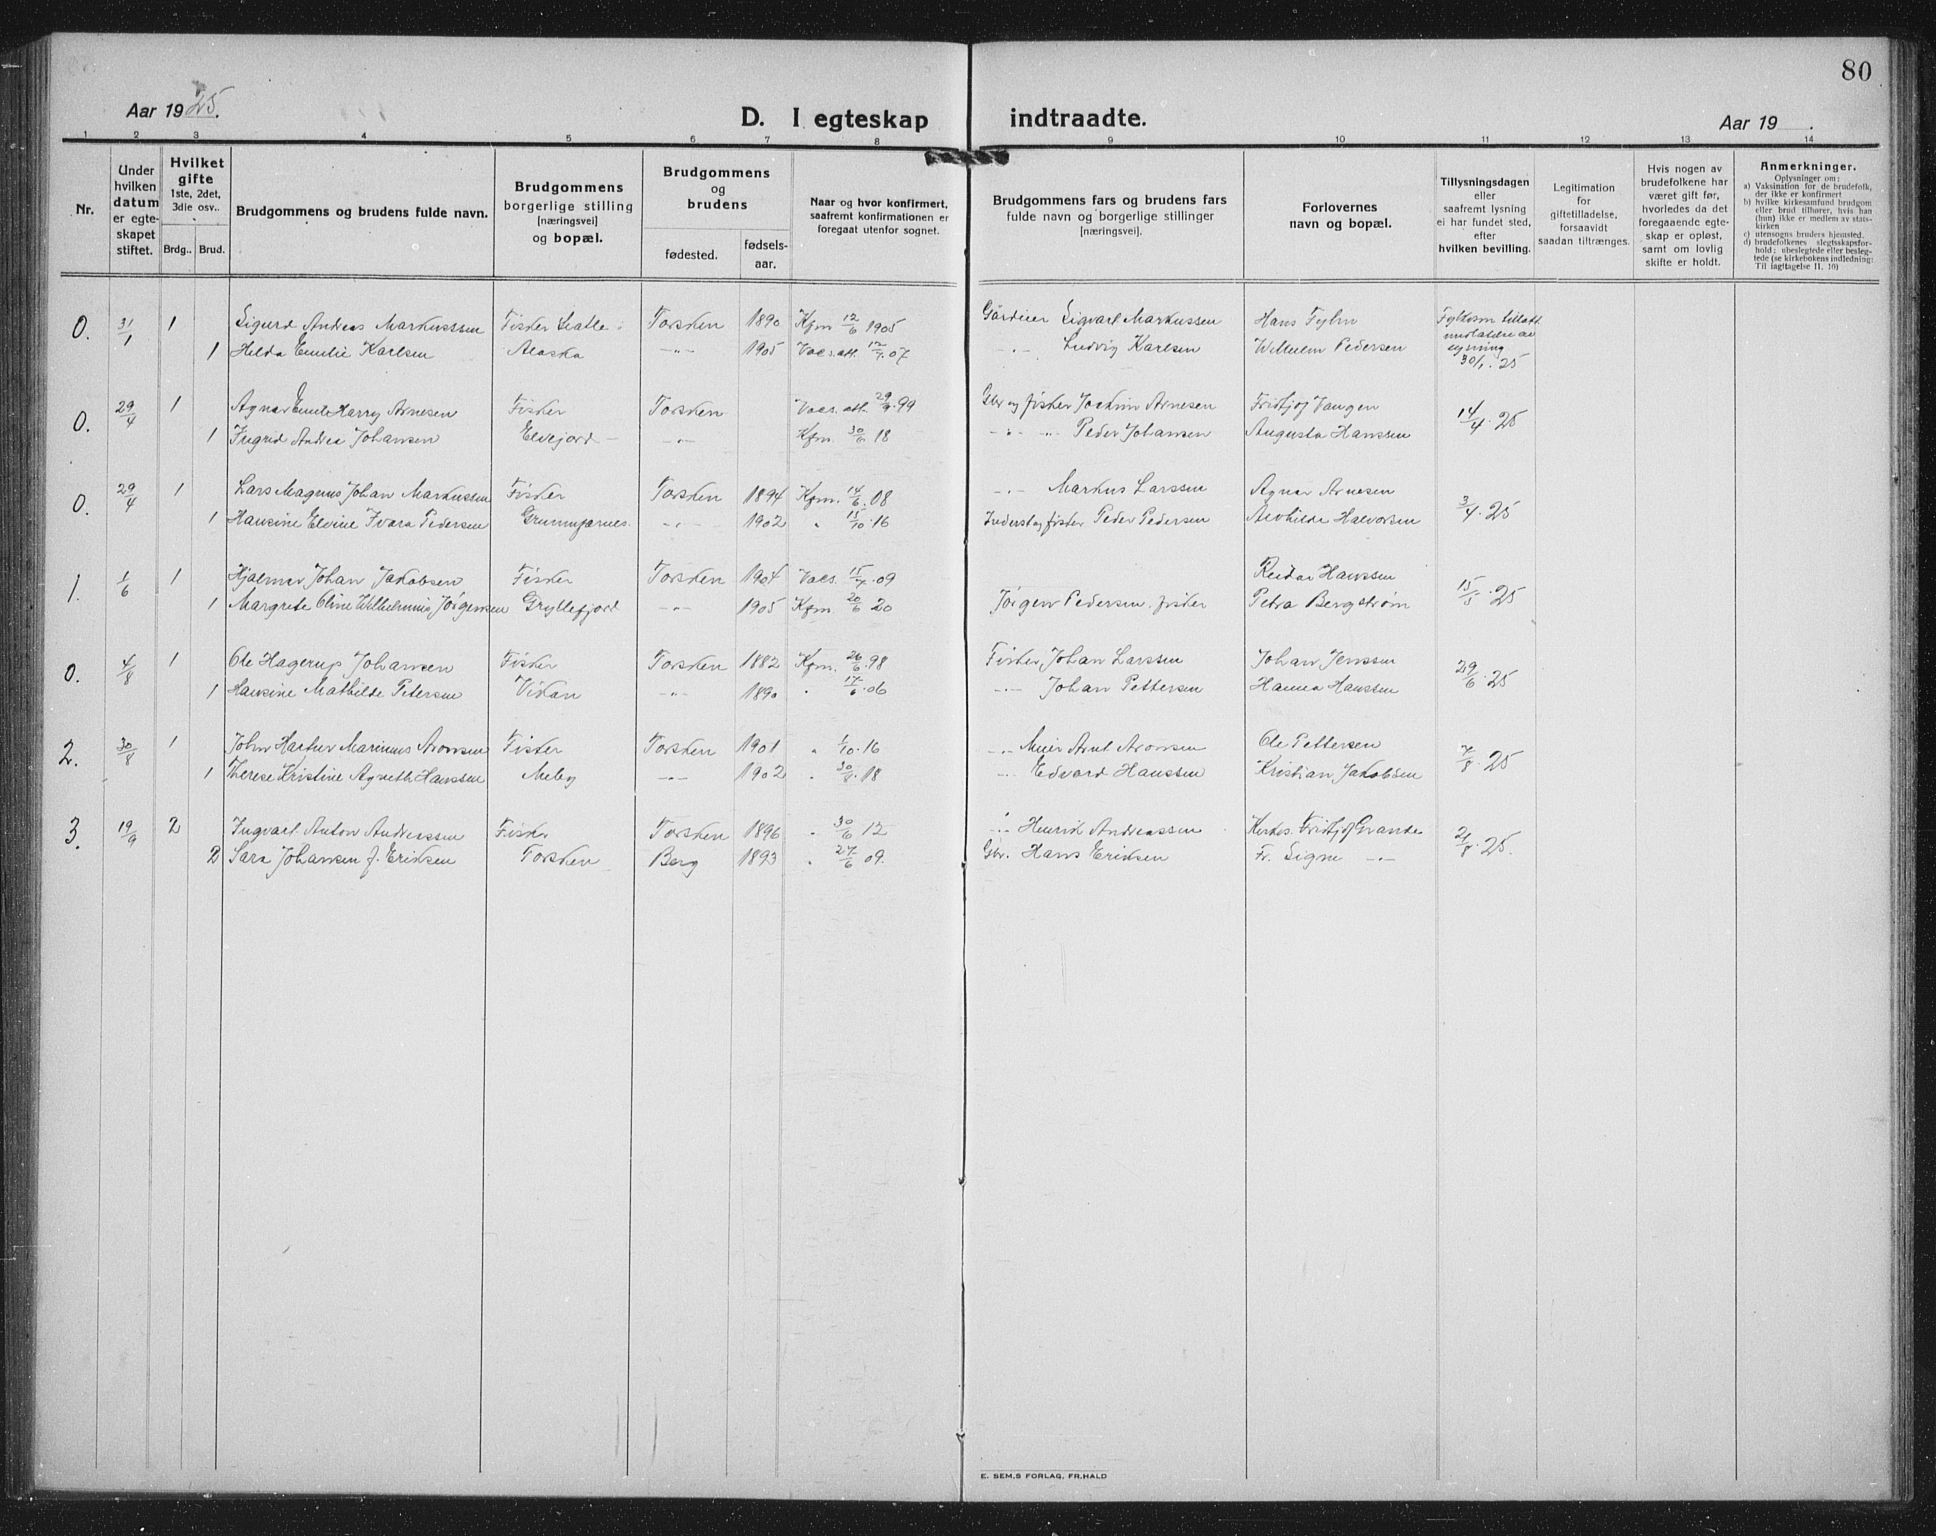 80
Aar 1925.
D. I egteskap indtraadte.
Aar 19 .
1 2 3 4 5 6 7 8 9 10 11 12 13 14
Nr.
Under hvilken datum er egte-skapet stiftet.
Hvilket gifte
1ste, 2det, 3die osv..
Brdg.. Brud.
Brudgommens og brudens fulde navn.
Brudgommens borgerlige stilling [næringsvei] og bopæl.
Brudgommens og brudens
fødested. fødsels-aar.
Naar og hvor konfirmert, saafremt konfirmationen er foregaat utenfor sognet.
Brudgommens fars og brudens fars fulde navn og borgerlige stillinger [næringsvei].
Forlovernes navn og bopæl.
Tillysningsdagen eller saafremt lysning ei har fundet sted, efter hvilken bevilling.
Legitimation for giftetilladelse, forsaavidt saadan tiltrænges.
Hvis nogen av brudefolkene har været gift før, hvorledes da det foregaaende egte-skap er opløst, samt om lovlig skifte er holdt.
Anmerkninger.
Oplysninger om:
a) Vaksination for de brudefolk, der ikke er konfirmert
b) hvilke kirkesamfund brudgom eller brud tilhører, hvis han (hun) ikke er medlem av stats-kirken
c) utensogns bruders hjemsted.
d) brudefolkenes slegtsskapsfor-hold; ubeslegtede eller besleg-tede (se kirkebokens indledning: Til iagttagelse II, 10)
0. 31/1 1 Sigurd Andreas Markussen Fisker Torsken 1890 Kfm 12/6 1905 Gårdeier Sigvart Markussen Hans Fylm
1 Helda Emilie Karlsen Alaska -"- 1905 -"- Ludvig Karlsen Wilhelm Pedersen 30/1. 25
0. 29/4 1 Agnar Emil Harry Arnesen Fisker Torsken Vacs. att. 29/9. 99 Gbr og fisker Joakim Arnesen Fridtjof Vangen 14/4. 25
1 Ingrid Andrea Johansen Elvejord -"- Kfm. 30/6 18 -"- -"- Peder Johansen Augusta Hanssen
0. 29/4 1 Lars Magnus Johan Markussen Fisker Torsken 1894 Kfm. 14/6. 08 -"- Markus Larssen Agnar Arnesen 3/4. 25
1 Hansine Elvine Ivara Pedersen -"- 1902 " 15/10. 16 Inderst og fisker Peder Pedersen Halvorsen
1. 1/6 1 Hjalmar Johan Jakobsen Fisker Torsken 1904 Vacs. 15/4. 09 Reidar Hanssen 15/5. 25
1 Margrete Oline Wilhelmine Jørgensen Gryllefjord -"- 1905 Kfm. 20/6 20 Jørgen Pedersen, fisker Petra Bergstrøm
0. 4/8 1 Ole Hagerup Johansen Fisker Torsken 1882 Kfm. 26/6. 98 Fisker Johan Larssen Johan Jenssen 29/6. 25
1 Hansine Mathilde Petersen Vikan -"- 1890 " 17/6. 06 -"- Johan Pettersen Hanna Hanssen
2. 30/8 1 John Hartur Marinus Aronsen Fisker Torsken 1901 " 1/10. 16 -"- Meier Arnt Aronsen Ole Pettersen 7/8. 25
1 Therese Kristine Agneth Hanssen Medby -"- 1902 " 30/8. 18 -"- Edvard Hanssen Kristian Jakobsen
3. 19/9 2 Ingvart Anton Andreassen Fisker Torsken 1896 " 30/6 12 -"- Henrik Andreassen Fridtjof Grande 21/8. 25.
2 Sara Johansen f. Eriksen Torsken Berg 1893 " 27/6 09. Gbr. Hans Eriksen Fr. Signe -"-
E. SEM.S FORLAG, FR.HALD